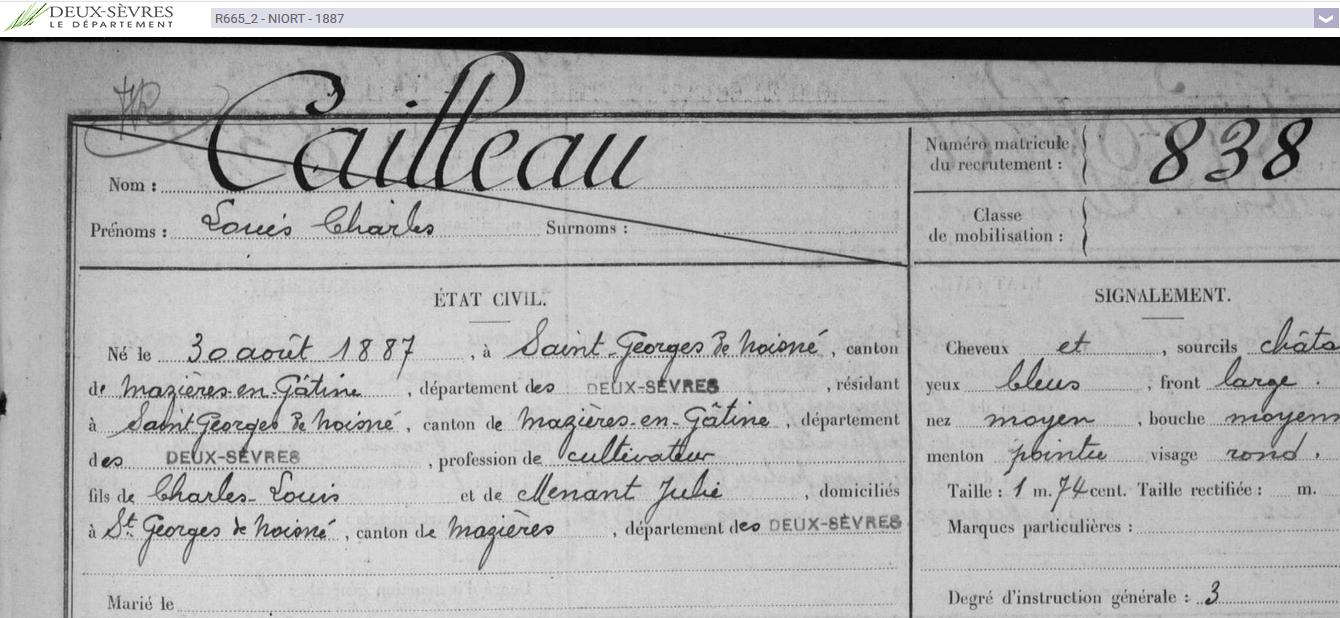 DEUX-SÈVRES
LE DÉPARTEMENT
R665_2 - NIORT - 1887
Nom : Cailleau
Prénoms : Louis Charles Surnoms :
Numéro matricule du recrutement : 838
Classe de mobilisation :
ÉTAT CIVIL.
Né le 30 août 1887, à Saint-Georges de Noisné, canton
de Mazières-en-Gâtine, département des DEUX-SÈVRES, résidant
à Saint Georges de Noisné, canton de Mazières-en-Gâtine, département
des DEUX-SÈVRES, profession de cultivateur
fils de Charles-Louis et de Menant Julie, domiciliés
à St Georges de Noisné, canton de Mazières, département des DEUX-SÈVRES
Marié le
SIGNALEMENT.
Cheveux et, sourcils châta
yeux bleus, front large.
nez moyen, bouche moyenn
menton pointu visage rond.
Taille : 1 m. 74 cent. Taille rectifiée : m.
Marques particulières :
Degré d'instruction générale : 3